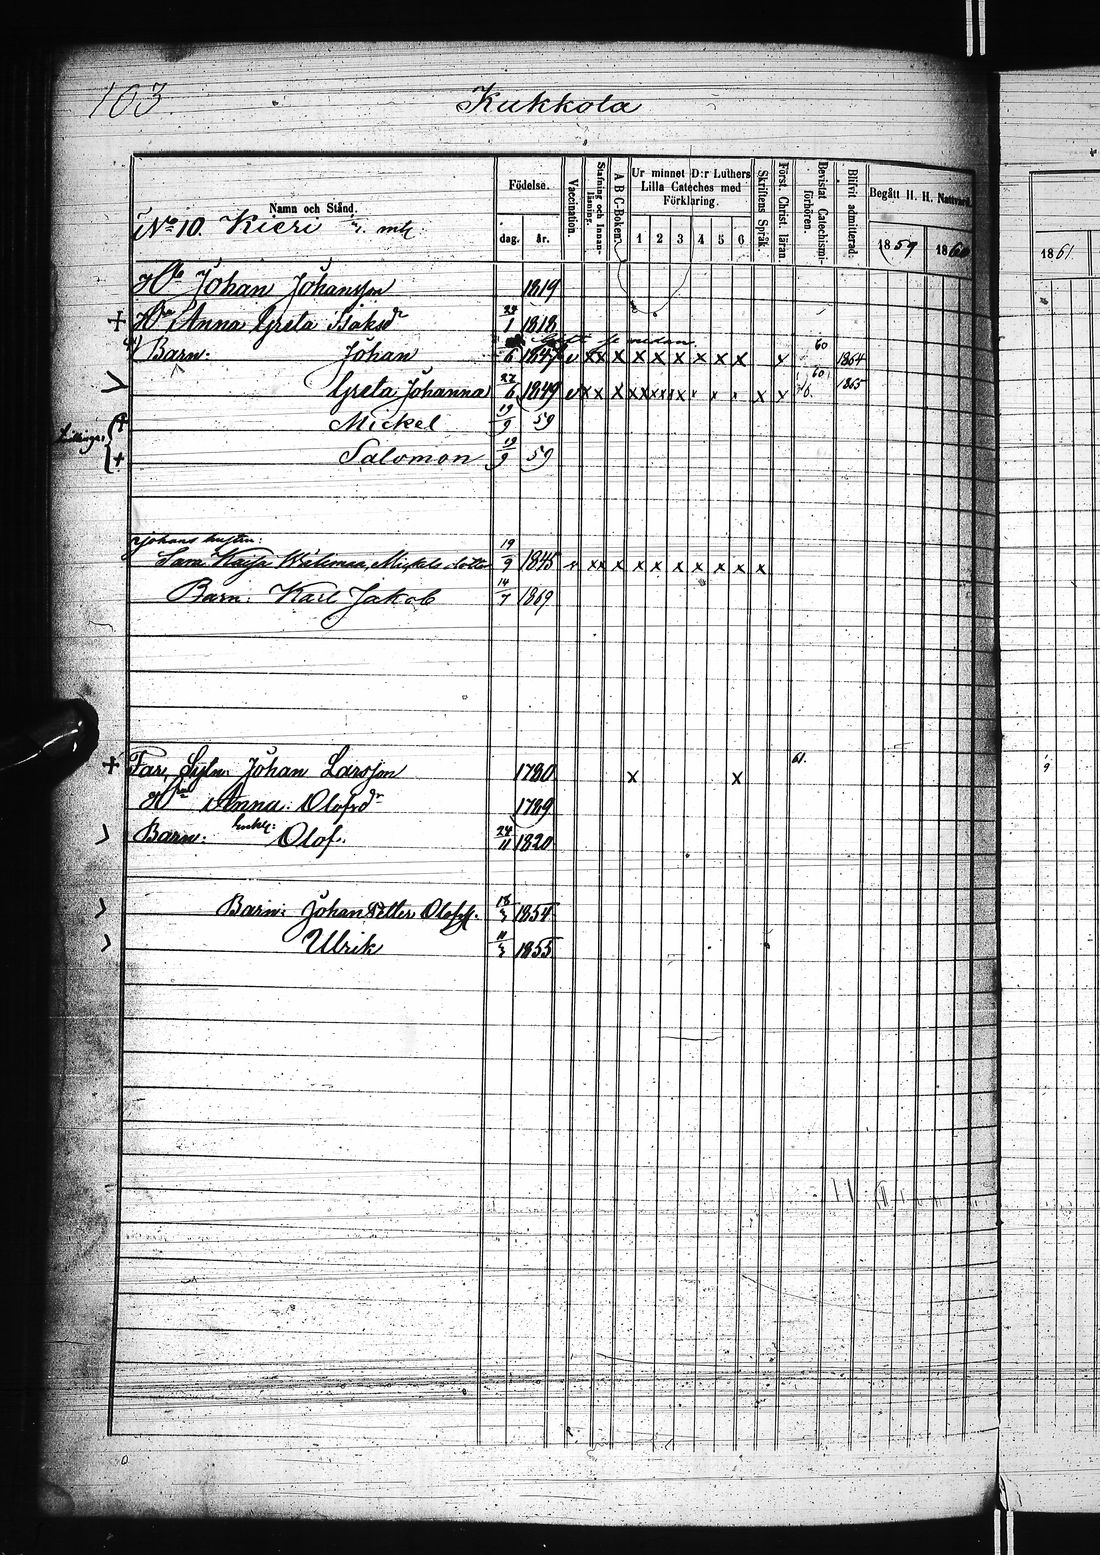 163
Kukkola
Namn och Stånd.
Födelse.
dag. år.
Vaccination.
Stafning och Innanläsning.
A B C-Boken.
Ur minnet D:r Luthers Lilla Cateches med Förklaring.
1 2 3 4 5 6
Skriftens Språk.
Först. Christ. läran
Bevistat Catechismi-förhören.
Blifvit admitterad.
Begått H. H. Nattvard.
1859 1860
1861
No 10. Kieri
Johan Johansson 1819
+ Anna Greta Isaksdr 1 1818
Barn: Johan 6 1847 v x x x x x x x x x 60 1864
Greta Johanna 22/6 1849 v x x x x x x x x x x x 60 1865
+ Mickel 19/9 59
+ Salomon 19/9 59
Johans hustru:
Sara Kaisa Mickelsdotter 19/9 1845 x x x x x x x x x x
Barn: Karl Jakob 14/7 1869
+ Far, Johan Larsson 1780 x x 61.
Anna Olofsdr 1789
Barn: Olof. 24/11 1820
Barn: Johan Petter 18/3 1854
Ulrik 11/3 1855